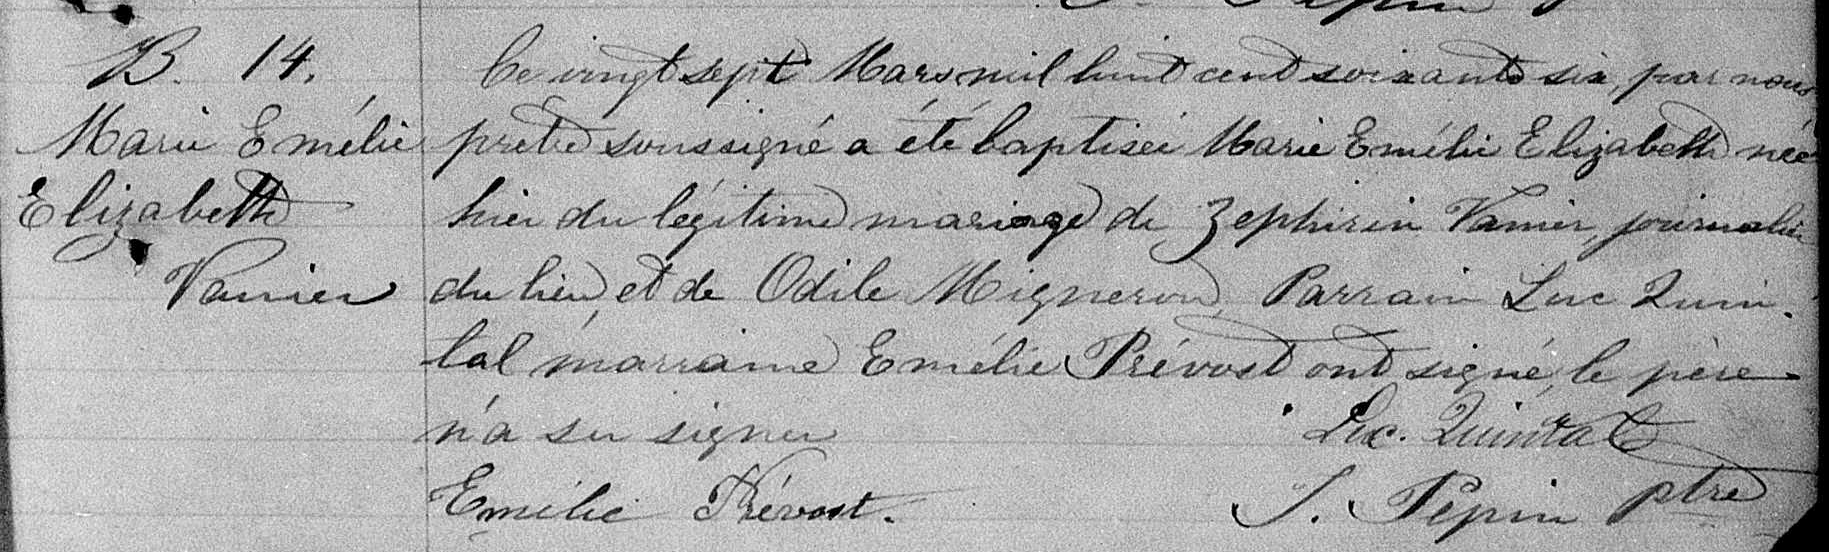 B. 14.
Marie Emélie
Elizabeth
Vanier
Le vingt sept Mars mil huit cent soixante six, par nous
prêtre soussigné a été baptisée Marie Emélie Elizabeth née
hier du légitime mariage de Zephirin Vanier, journalier
du lieu, et de Odile Migneron, Parrain Luc Quin-
tal marraine Emélie Prévost ont signé, le père
n'a su signer
Luc. Quintal
Emélie Prévost.
S. Pépin ptre